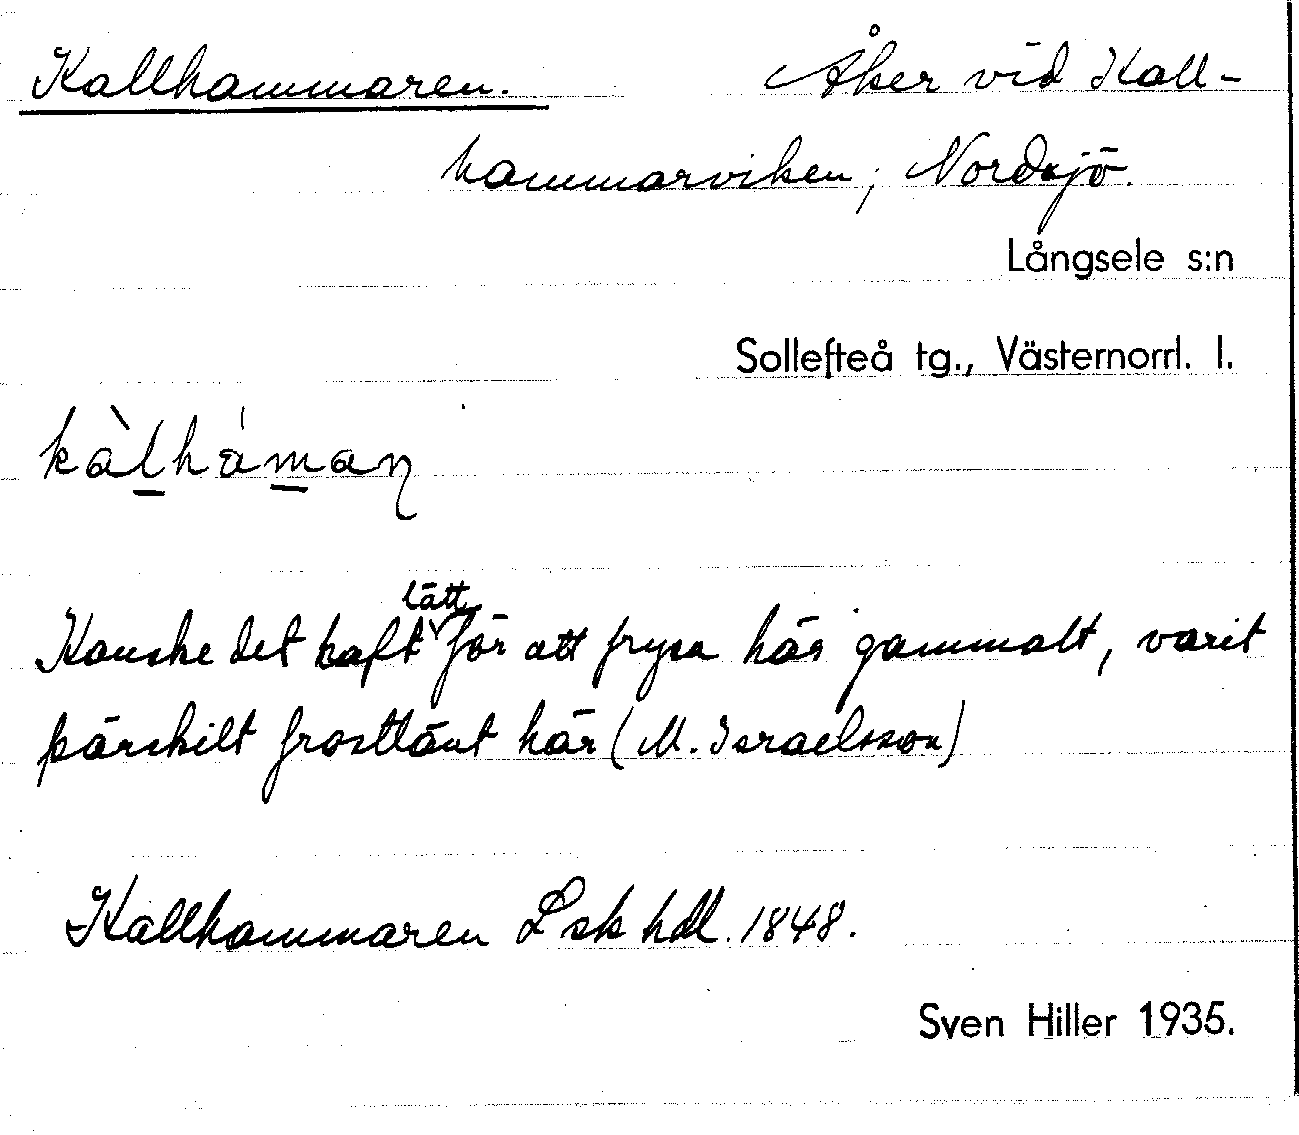 Kallhammaren. Åker vid Kall-
hammarviken, Nordsjö.
Långsele s:n
Sollefteå tg., Västernorrl. l.
kàlháman
Kanske det haft lätt för att frysa här gammalt, varit
särskilt frostlänt här (M. Israelsson)
Kallhammaren Lsk hdl. 1848.
Sven Hiller 1935.